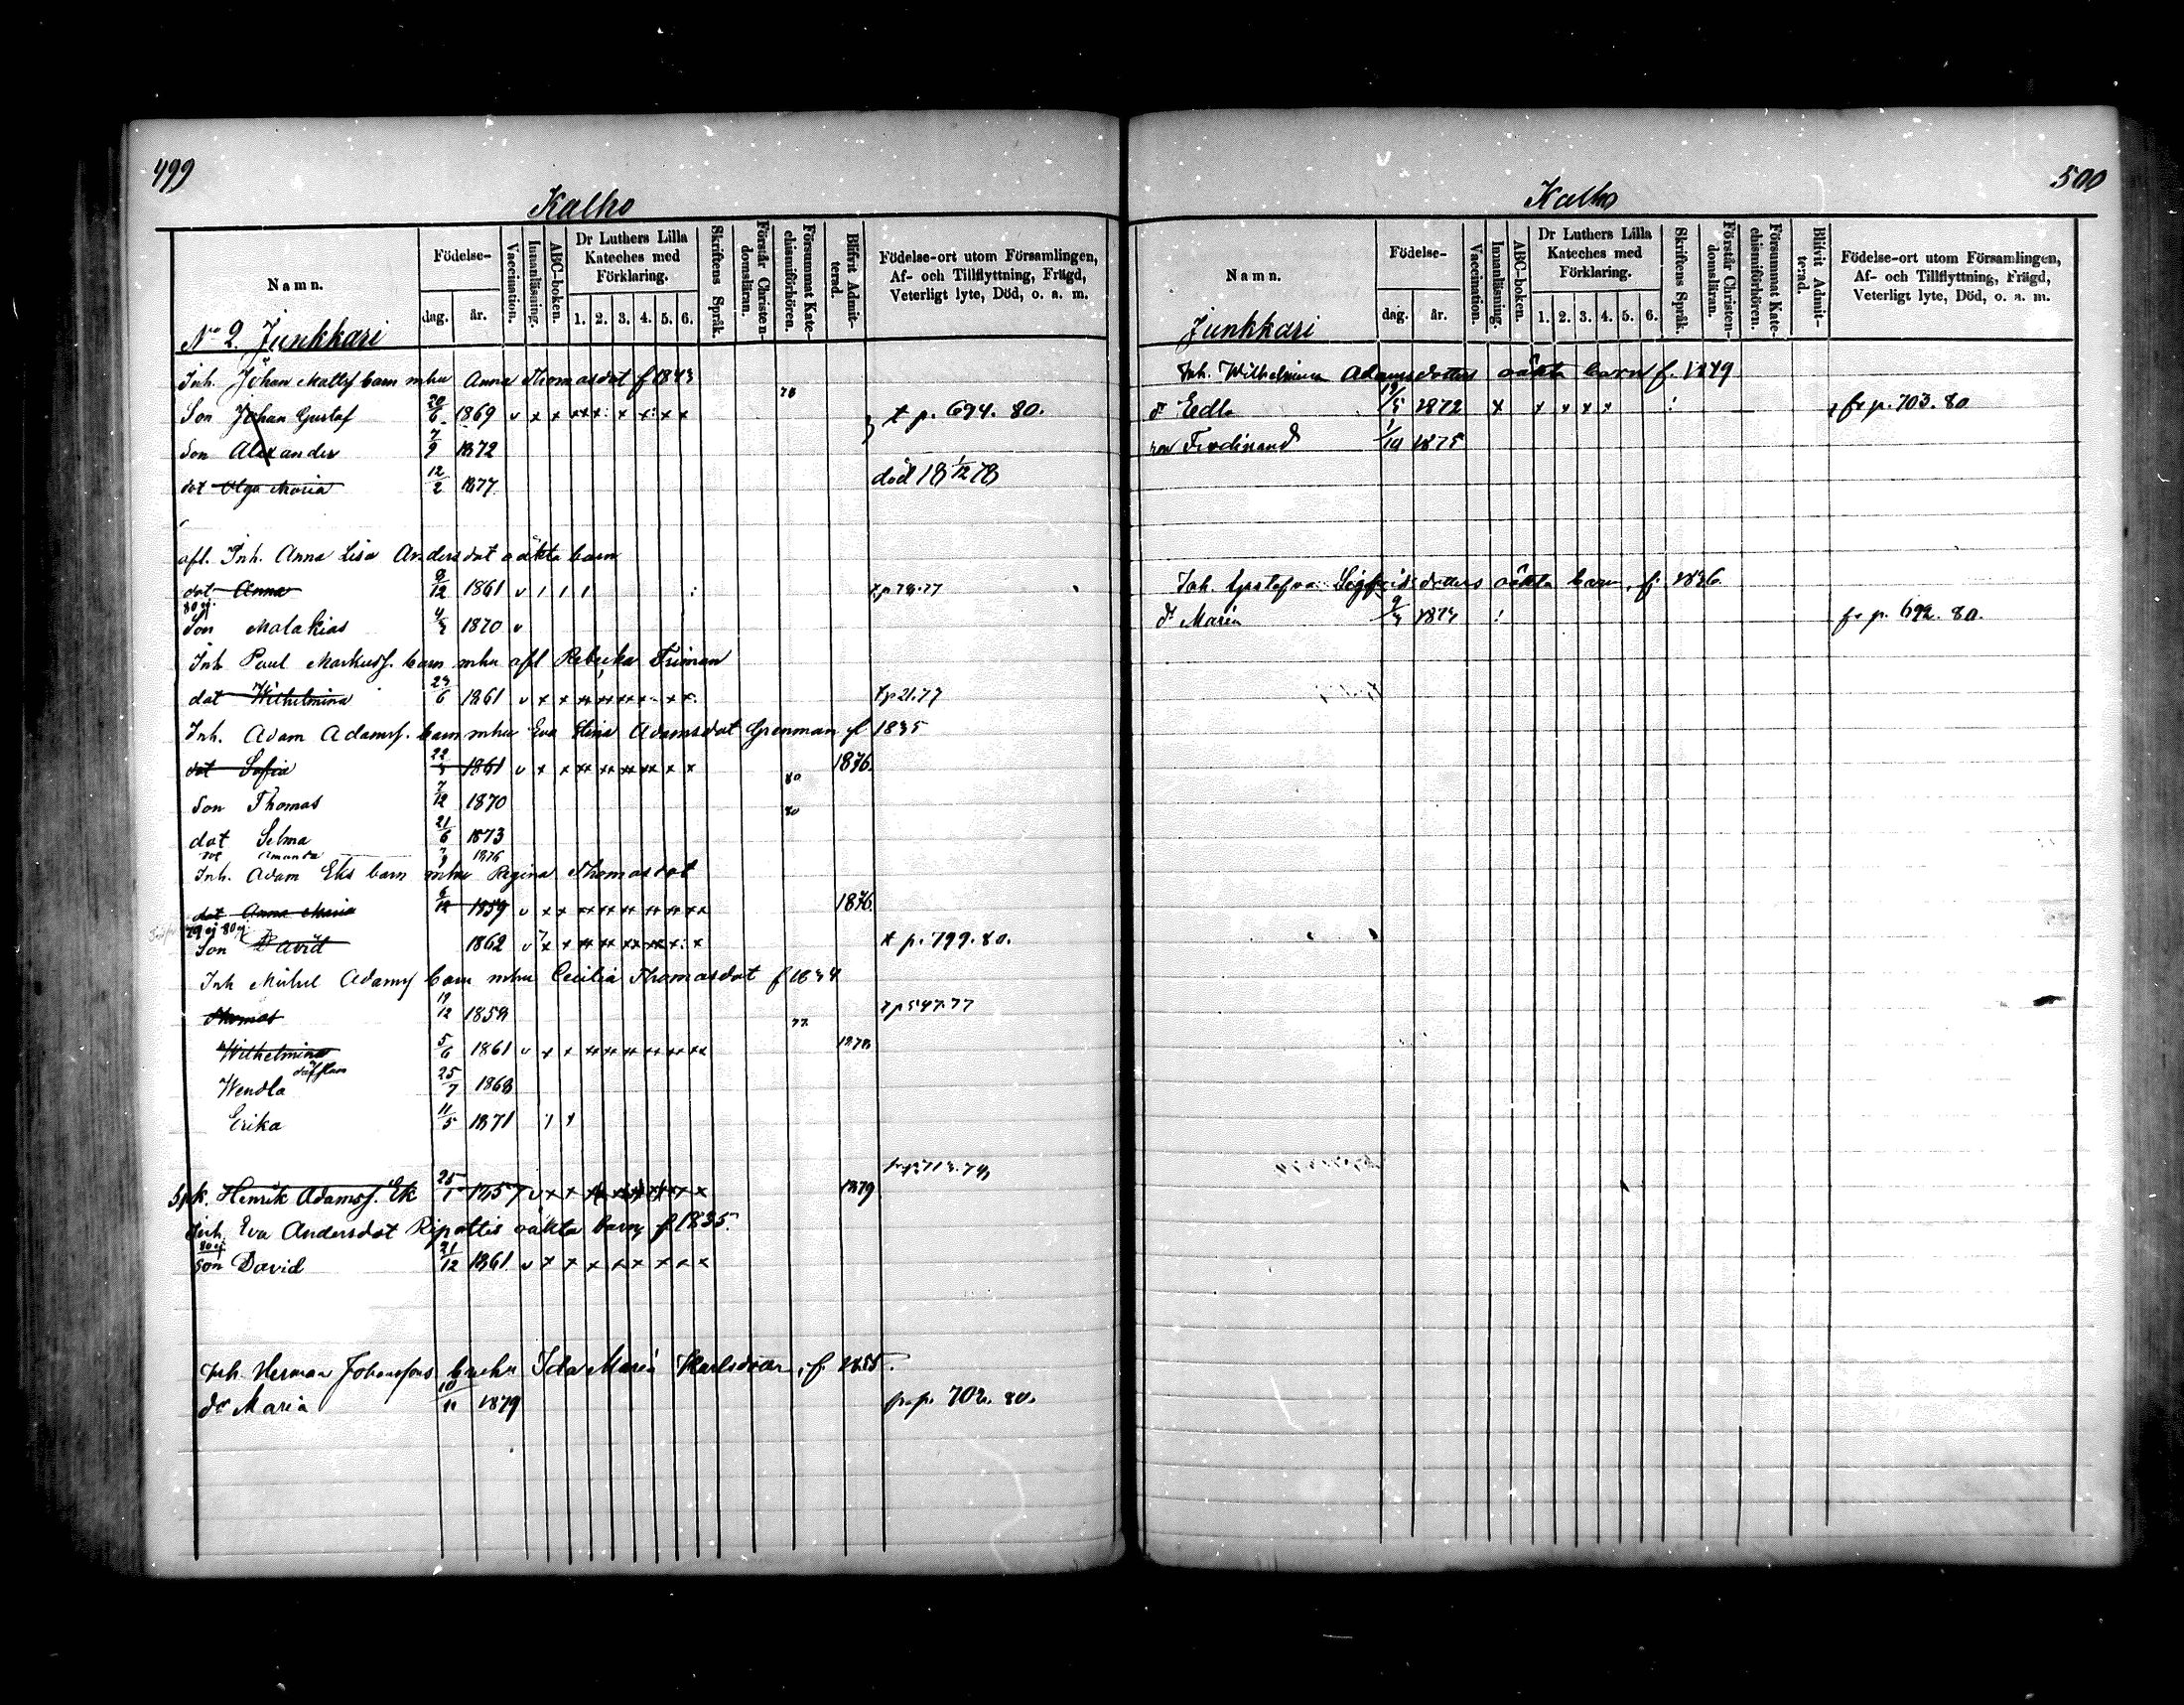 499
Kalho
Namn.
Födelse-
dag.
år.
Vaccination.
Innanläsning.
ABC-boken.
Dr Luthers Lilla Kateches med Förklaring.
1. 2. 3. 4. 5. 6.
Skriftens Språk.
Förstår Christendomsläran.
Försummat Katechismiförhören.
Blifvit Admitterad.
Födelse-ort utom Församlingen, Af- och Tillflyttning, Frägd, Veterligt lyte, Död, o. a. m.
No 2. Junkkari
Inh. Johan Mattsf barn mhu Anna Thomasdot f 1843
Son Johan Gustaf 20/6 1869 v x x xx: x x: x x t p. 694. 80.
Son Alexander 7/9 1872
dot Olga Maria 12/2 1877 död 18 1/12 78
afl. Inh. Anna Lisa Andersdot oäkta barn
dot Anna 9/12 1861 v / / / / : t p 78.77
80 ej.
Son Malakias 1870 v
Inh Paul Markusf. barn mhu afl Rebecka Friman
dot Wilhelmina 23/6 1861 v x x xx xx xx x: x x: t p 21.77
Inh. Adam Adamsf. barn mhu Eva Stina Adamsdot Grenman f 1835
dot Sofia 1861 v x x xx xx xx xx x x 1876.
Son Thomas 7/12 1870 80
dot Selma 21/6 1873 80
dot Amanda 1876
Inh. Adam Eks barn mhu Regina Thomasdot
dot Anna Maria 1859 v x x xx xx xx xx xx xx 1876.
79 ej 80 ej.
Son David 1862 v x x xx xx xx xx x: x t p. 799. 80.
Inh Michel Adamsf barn mhu Cecilia Thomasdot f 1834
Thomas 19/12 1858 t p 547.77
Wilhelmina 5/6 1861 v x x xx xx xx xx xx xx 77. 1878
Wendla 25/7 1868
Erika 11/5 1871
Spk. Henrik Adamsf. Ek 25/1 1857 v x x x x x x x x 1879
Inh. Eva Andersdot Ripattis oäkta barn f 1835.
80 ej
Son David 21/12 1861 v x x x x x x x x
Inh. Herman Johanssons b m hu Ida Maria Karlsdoter, f. 1855.
dr Maria 10/11 1879 fr p. 702. 80.
500
Kalho
Namn.
Födelse-
dag.
år.
Vaccination.
Innanläsning.
ABC-boken.
Dr Luthers Lilla Kateches med Förklaring.
1. 2. 3. 4. 5. 6.
Skriftens Språk.
Förstår Christendomsläran.
Försummat Katechismiförhören.
Blifvit Admitterad.
Födelse-ort utom Församlingen, Af- och Tillflyttning, Frägd, Veterligt lyte, Död, o. a. m.
Junkkari
Inh. Wilhelmina Adamsdotters oäkta barn f. 1849
dr Edla 19/5 1872 x x x x x : fr p. 703. 80
son Ferdinand 1/10 1875
Inh. Gustafva Sigfridsdotters oäkta barn, f. 1836.
dr Maria 1874 ! fr p. 692. 80.